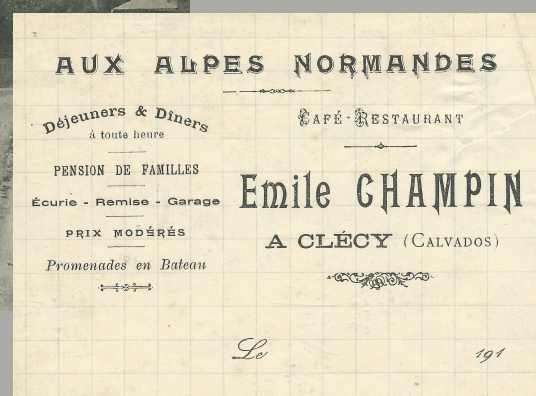 AUX ALPES NORMANDES
Déjeuners & Dîners
à toute heure
PENSION DE FAMILLES
Écurie - Remise - Garage
PRIX MODÉRÉS
Promenades en Bateau
CAFÉ-RESTAURANT
Emile CHAMPIN
A CLÉCY (CALVADOS)
Le 191